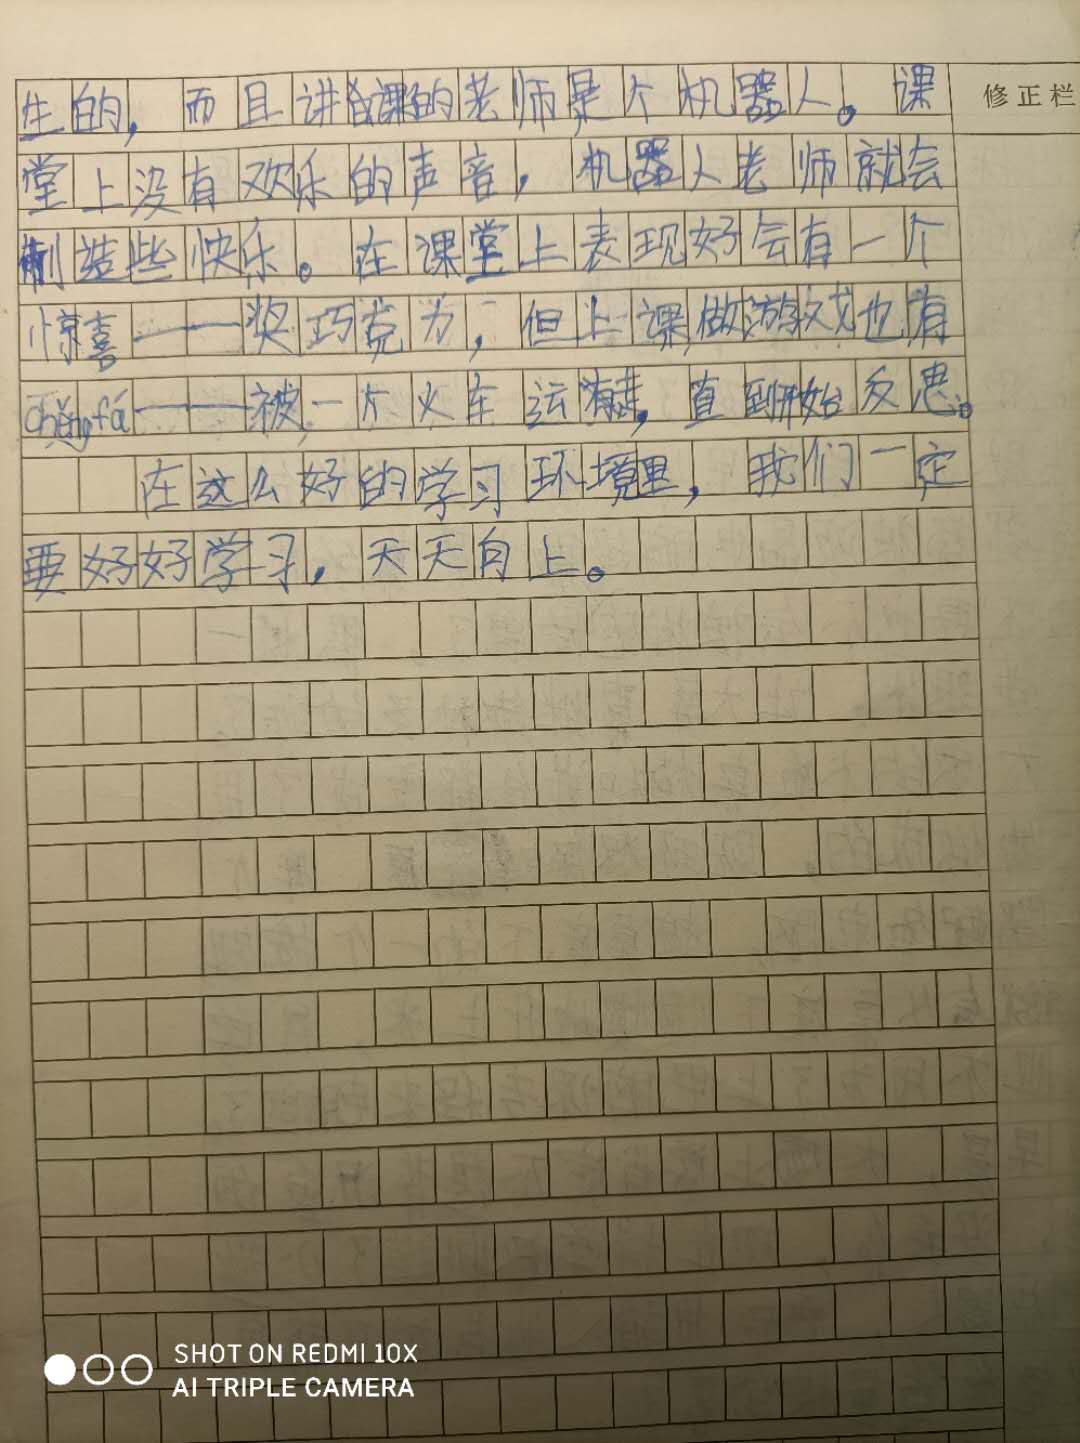 生的，而且讲课的老师是个机器人。课
修正栏
堂上没有欢乐的声音，机器人老师就会
制造些快乐。在课堂上表现好会有一个
惊喜——奖巧克力，但上课做游戏也有
chěngfá——被一片火车运走，直到开始反思。
在这么好的学习环境里，我们一定
要好好学习，天天向上。
SHOT ON REDMI 10X
AI TRIPLE CAMERA